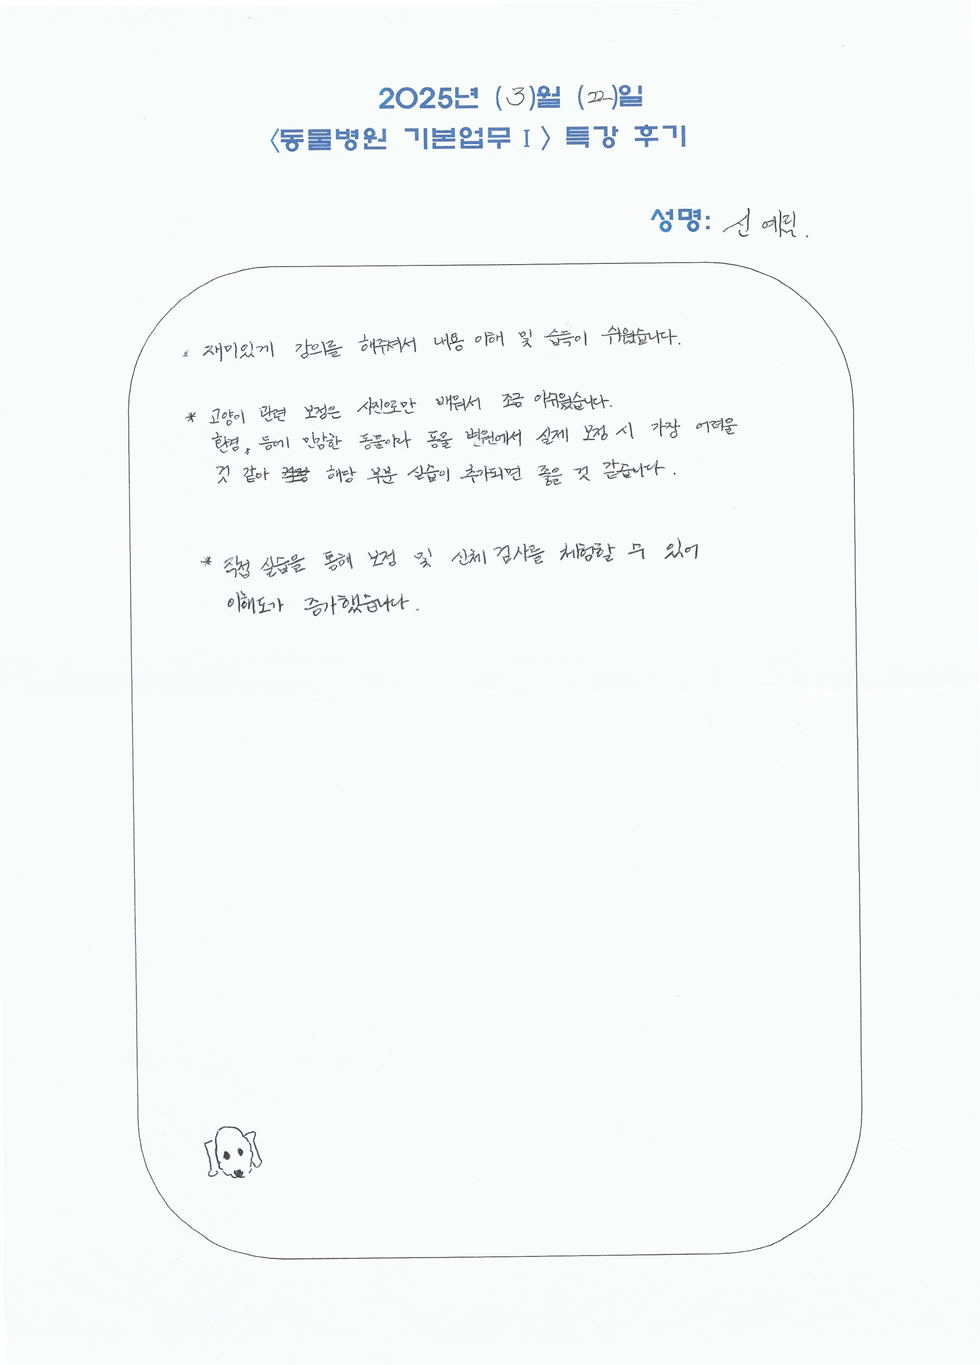 2025년 (3)월 (22)일
<동물병원 기본업무 I> 특강 후기
성명: 신예림.
* 재미있게 강의를 해주셔서 내용 이해 및 습득이 쉬웠습니다.
* 고양이 관련 보정은 사진으로만 배워서 조금 아쉬웠습니다.
환경, 등에 민감한 동물이라 동물 병원에서 실제 보정 시 가장 어려울
것 같아 해당 부분 실습이 추가되면 좋을 것 같습니다.
* 직접 실습을 통해 보정 및 신체 검사를 체험할 수 있어
이해도가 증가했습니다.